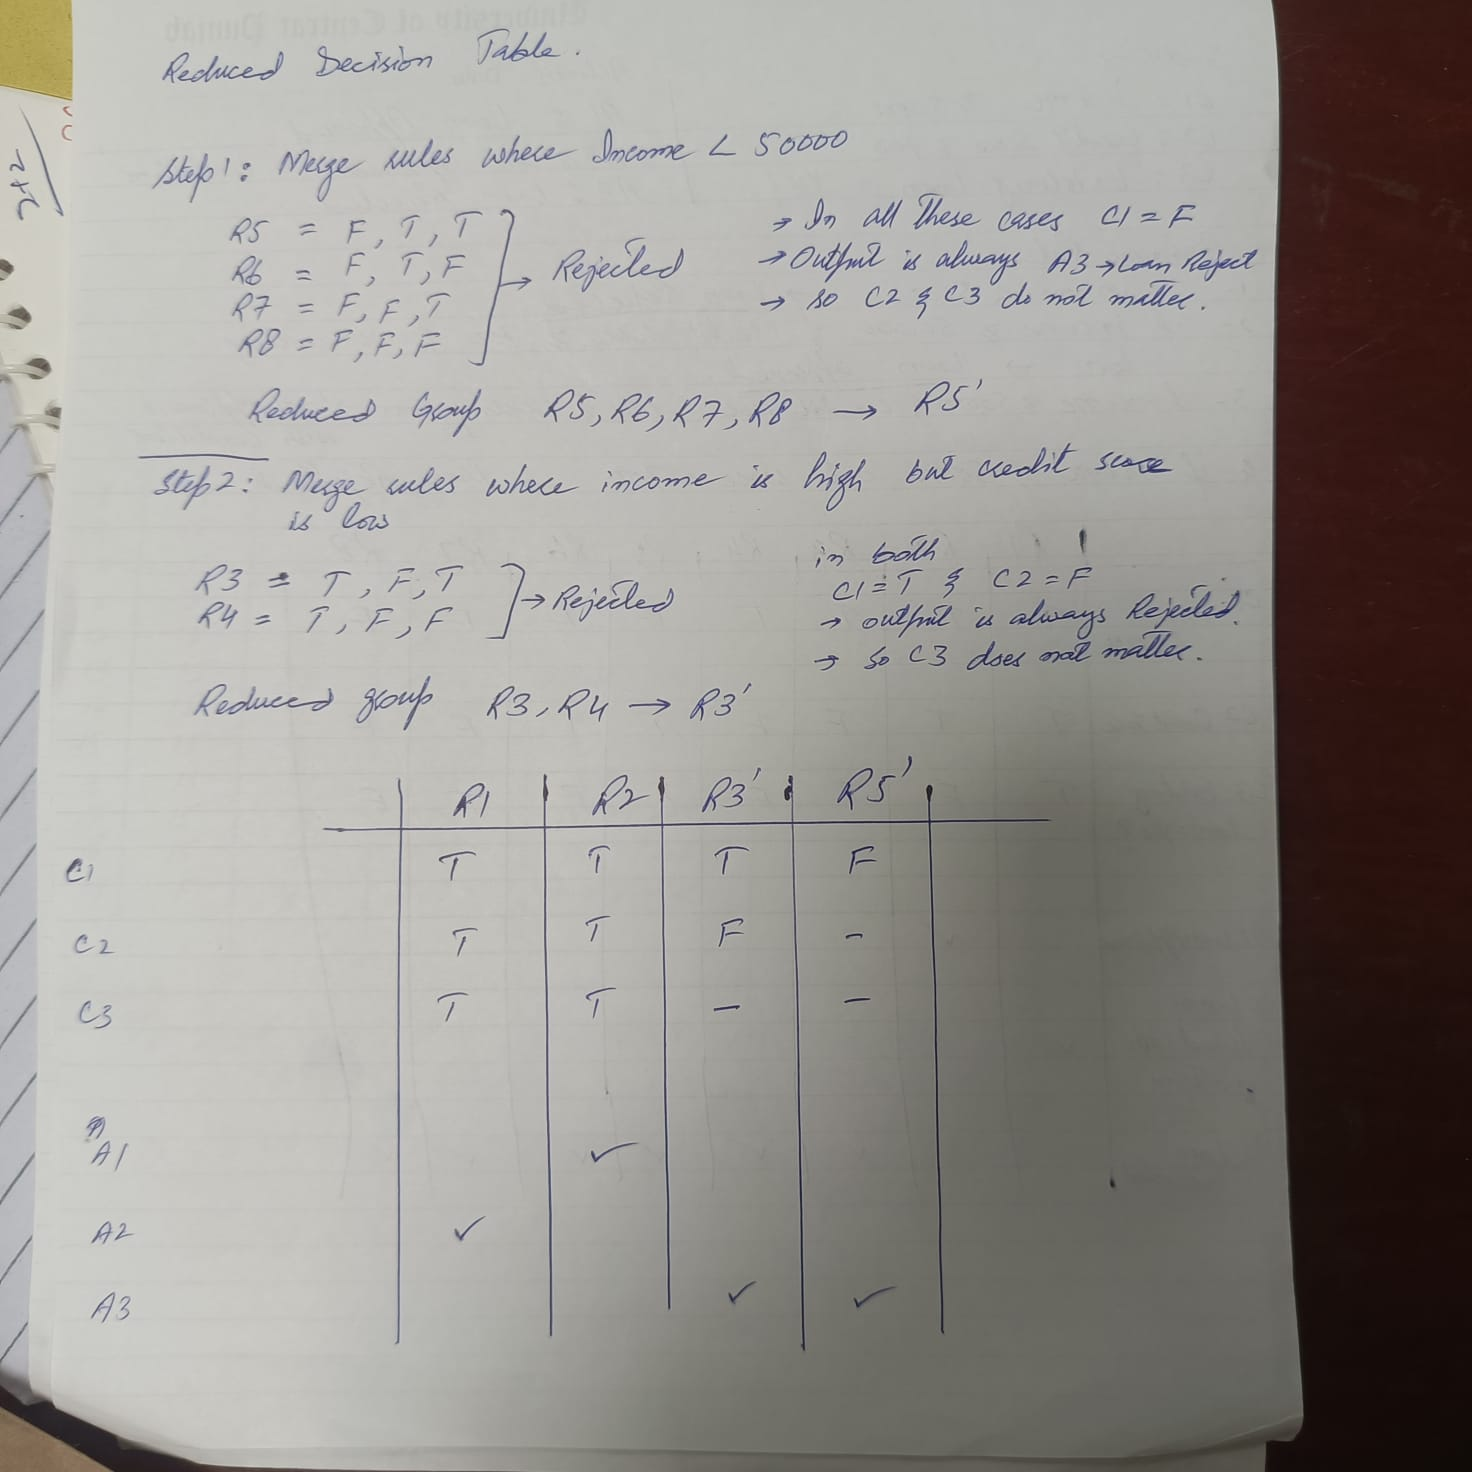 Reduced Decision Table.
Step 1: Merge rules where Income < 50000
R5 = F, T, T
R6 = F, T, F
R7 = F, F, T
R8 = F, F, F
→ Rejected
→ In all these cases C1 = F
→ Output is always A3 → Loan Reject
→ so C2 & C3 do not matter.
Reduced Group R5, R6, R7, R8 → R5'
Step 2: Merge rules where income is high but credit score
is low
R3 = T, F, T
R4 = T, F, F
→ Rejected
in both
C1 = T & C2 = F
→ output is always Rejected.
→ so C3 does not matter.
Reduced group R3, R4 → R3'
R1 R2 R3' R5'
C1 T T T F
C2 T T F -
C3 T T - -
A1 ✓
A2 ✓
A3 ✓ ✓
2+2